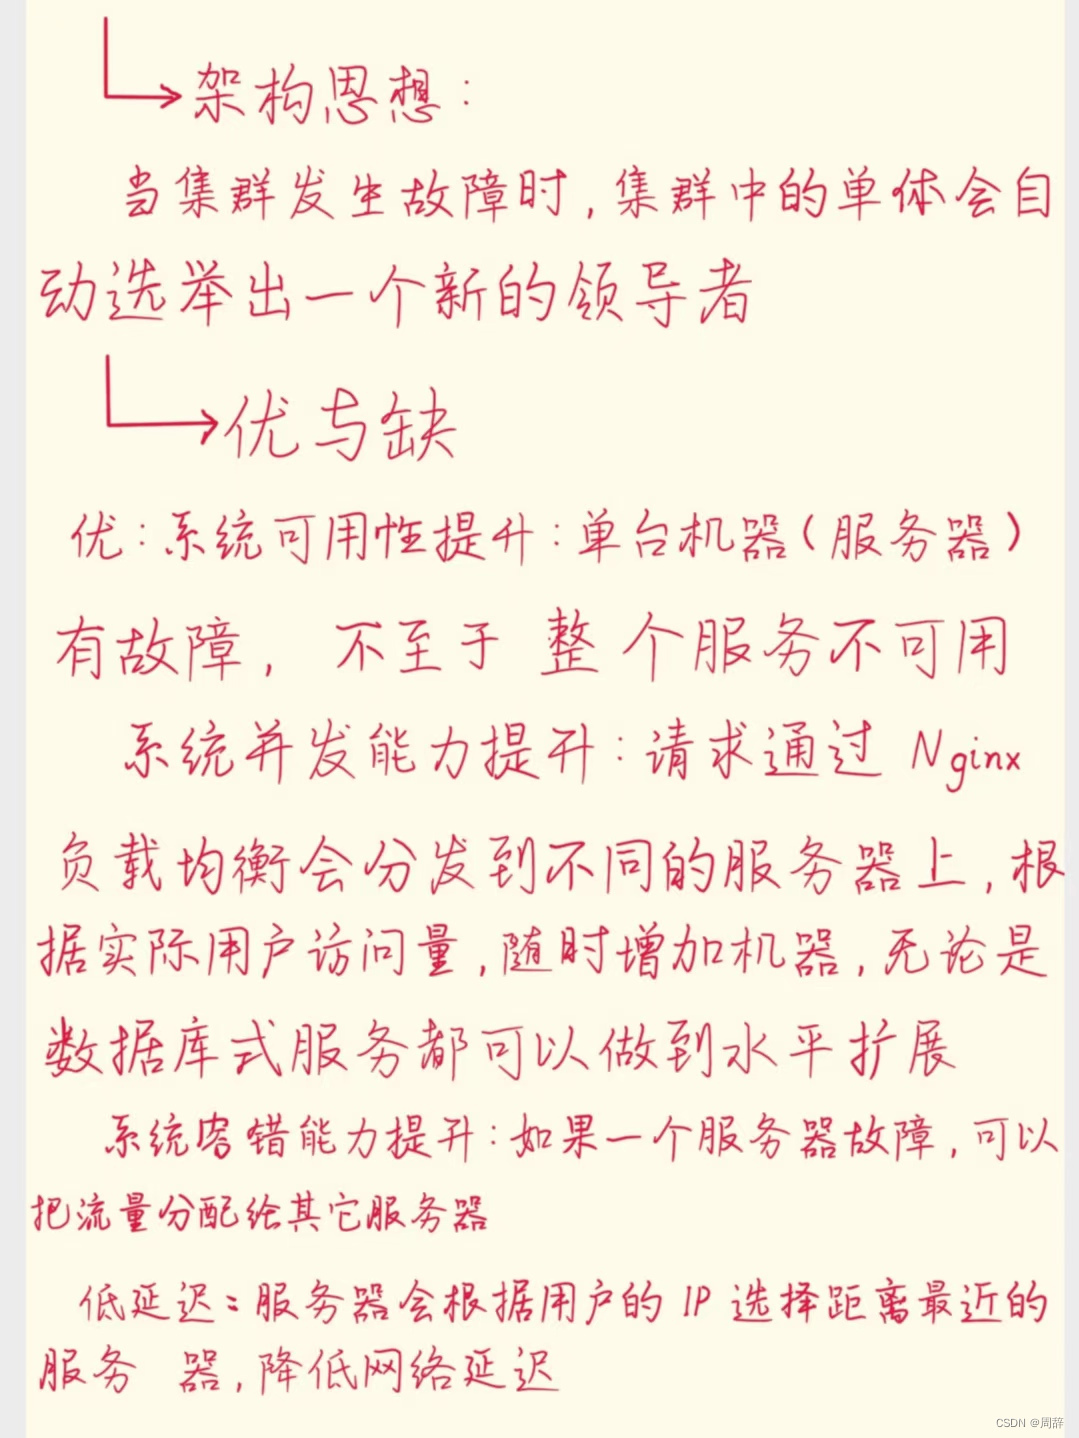 架构思想：
当集群发生故障时，集群中的单体会自
动选举出一个新的领导者
优与缺
优：系统可用性提升：单台机器（服务器）
有故障，不至于 整个服务不可用
系统并发能力提升：请求通过 Nginx
负载均衡会分发到不同的服务器上，根
据实际用户访问量，随时增加机器，无论是
数据库式服务都可以做到水平扩展
系统容错能力提升：如果一个服务器故障，可以
把流量分配给其它服务器
低延迟：服务器会根据用户的 IP 选择距离最近的
服务 器，降低网络延迟
CSDN @周辞